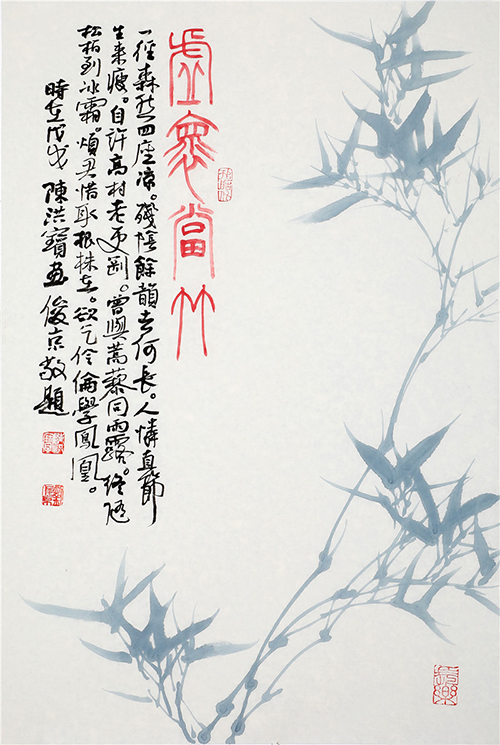 虛褱當竹
一徑森然四座凉。殘陰餘韻去何長。人憐直節
生來瘦。自許高材老更剛。曾與蒿藜同雨露。終隨
松柏到冰霜。煩君惜取根株在。欲乞伶倫學鳳凰。
時在戊戌 陳洪寶画 俊京敬題